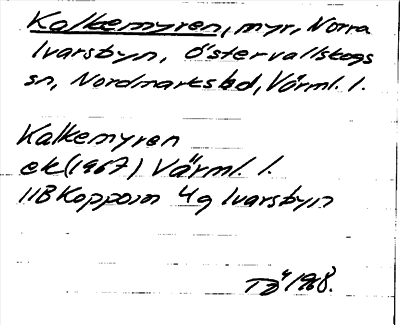 Kalkemyren, myr, Norra
Ivarsbyn, Östervallskogs
sn, Nordmarks hd, Värml. l.
Kalkemyren
ek (1967) Värml. l.
11B Koppom 4g Ivarsbyn
1968.